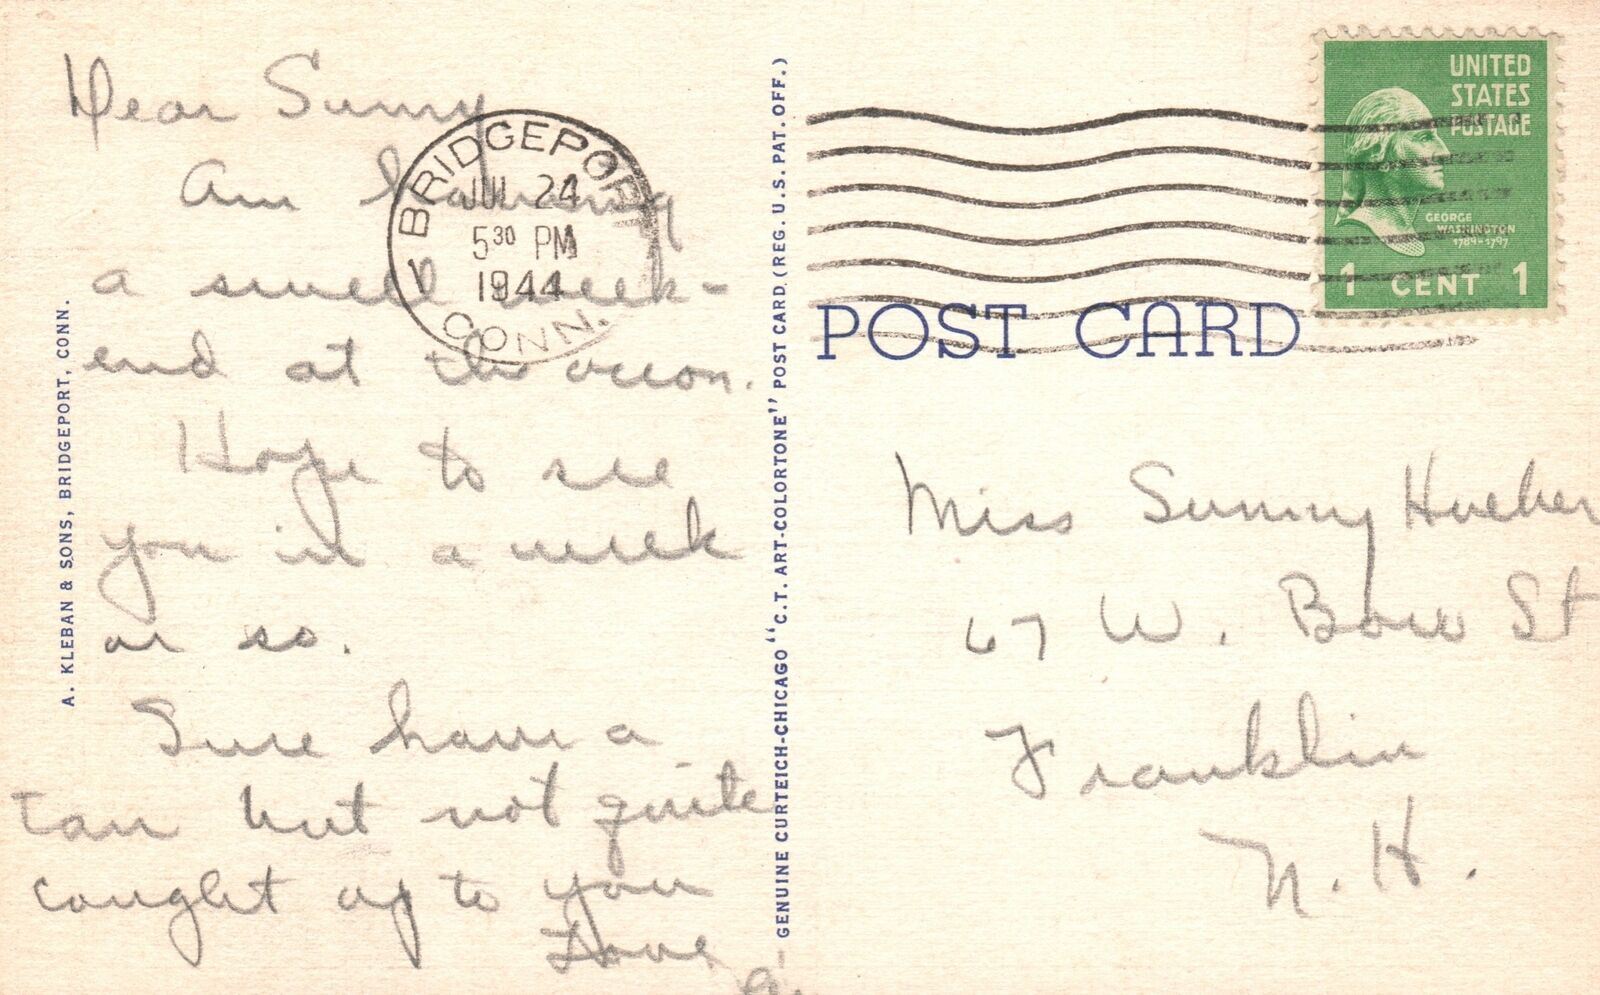 Dear Sunny
Am having
a swell week-
end at the ocean.
Hope to see
you in a week
or so.
Sure have a
tan but not quite
caught up to you
Love,
BRIDGEPORT
JUL 24
5 30 PM
1944
CONN.
A. KLEBAN & SONS, BRIDGEPORT, CONN.
GENUINE CURTEICH-CHICAGO "C.T. ART-COLORTONE" POST CARD (REG. U.S. PAT. OFF.)
UNITED
STATES
POSTAGE
GEORGE
WASHINGTON
1789-1797
1 CENT 1
POST CARD
Miss Sunny Hueber
67 W. Bow St
Franklin
N. H.